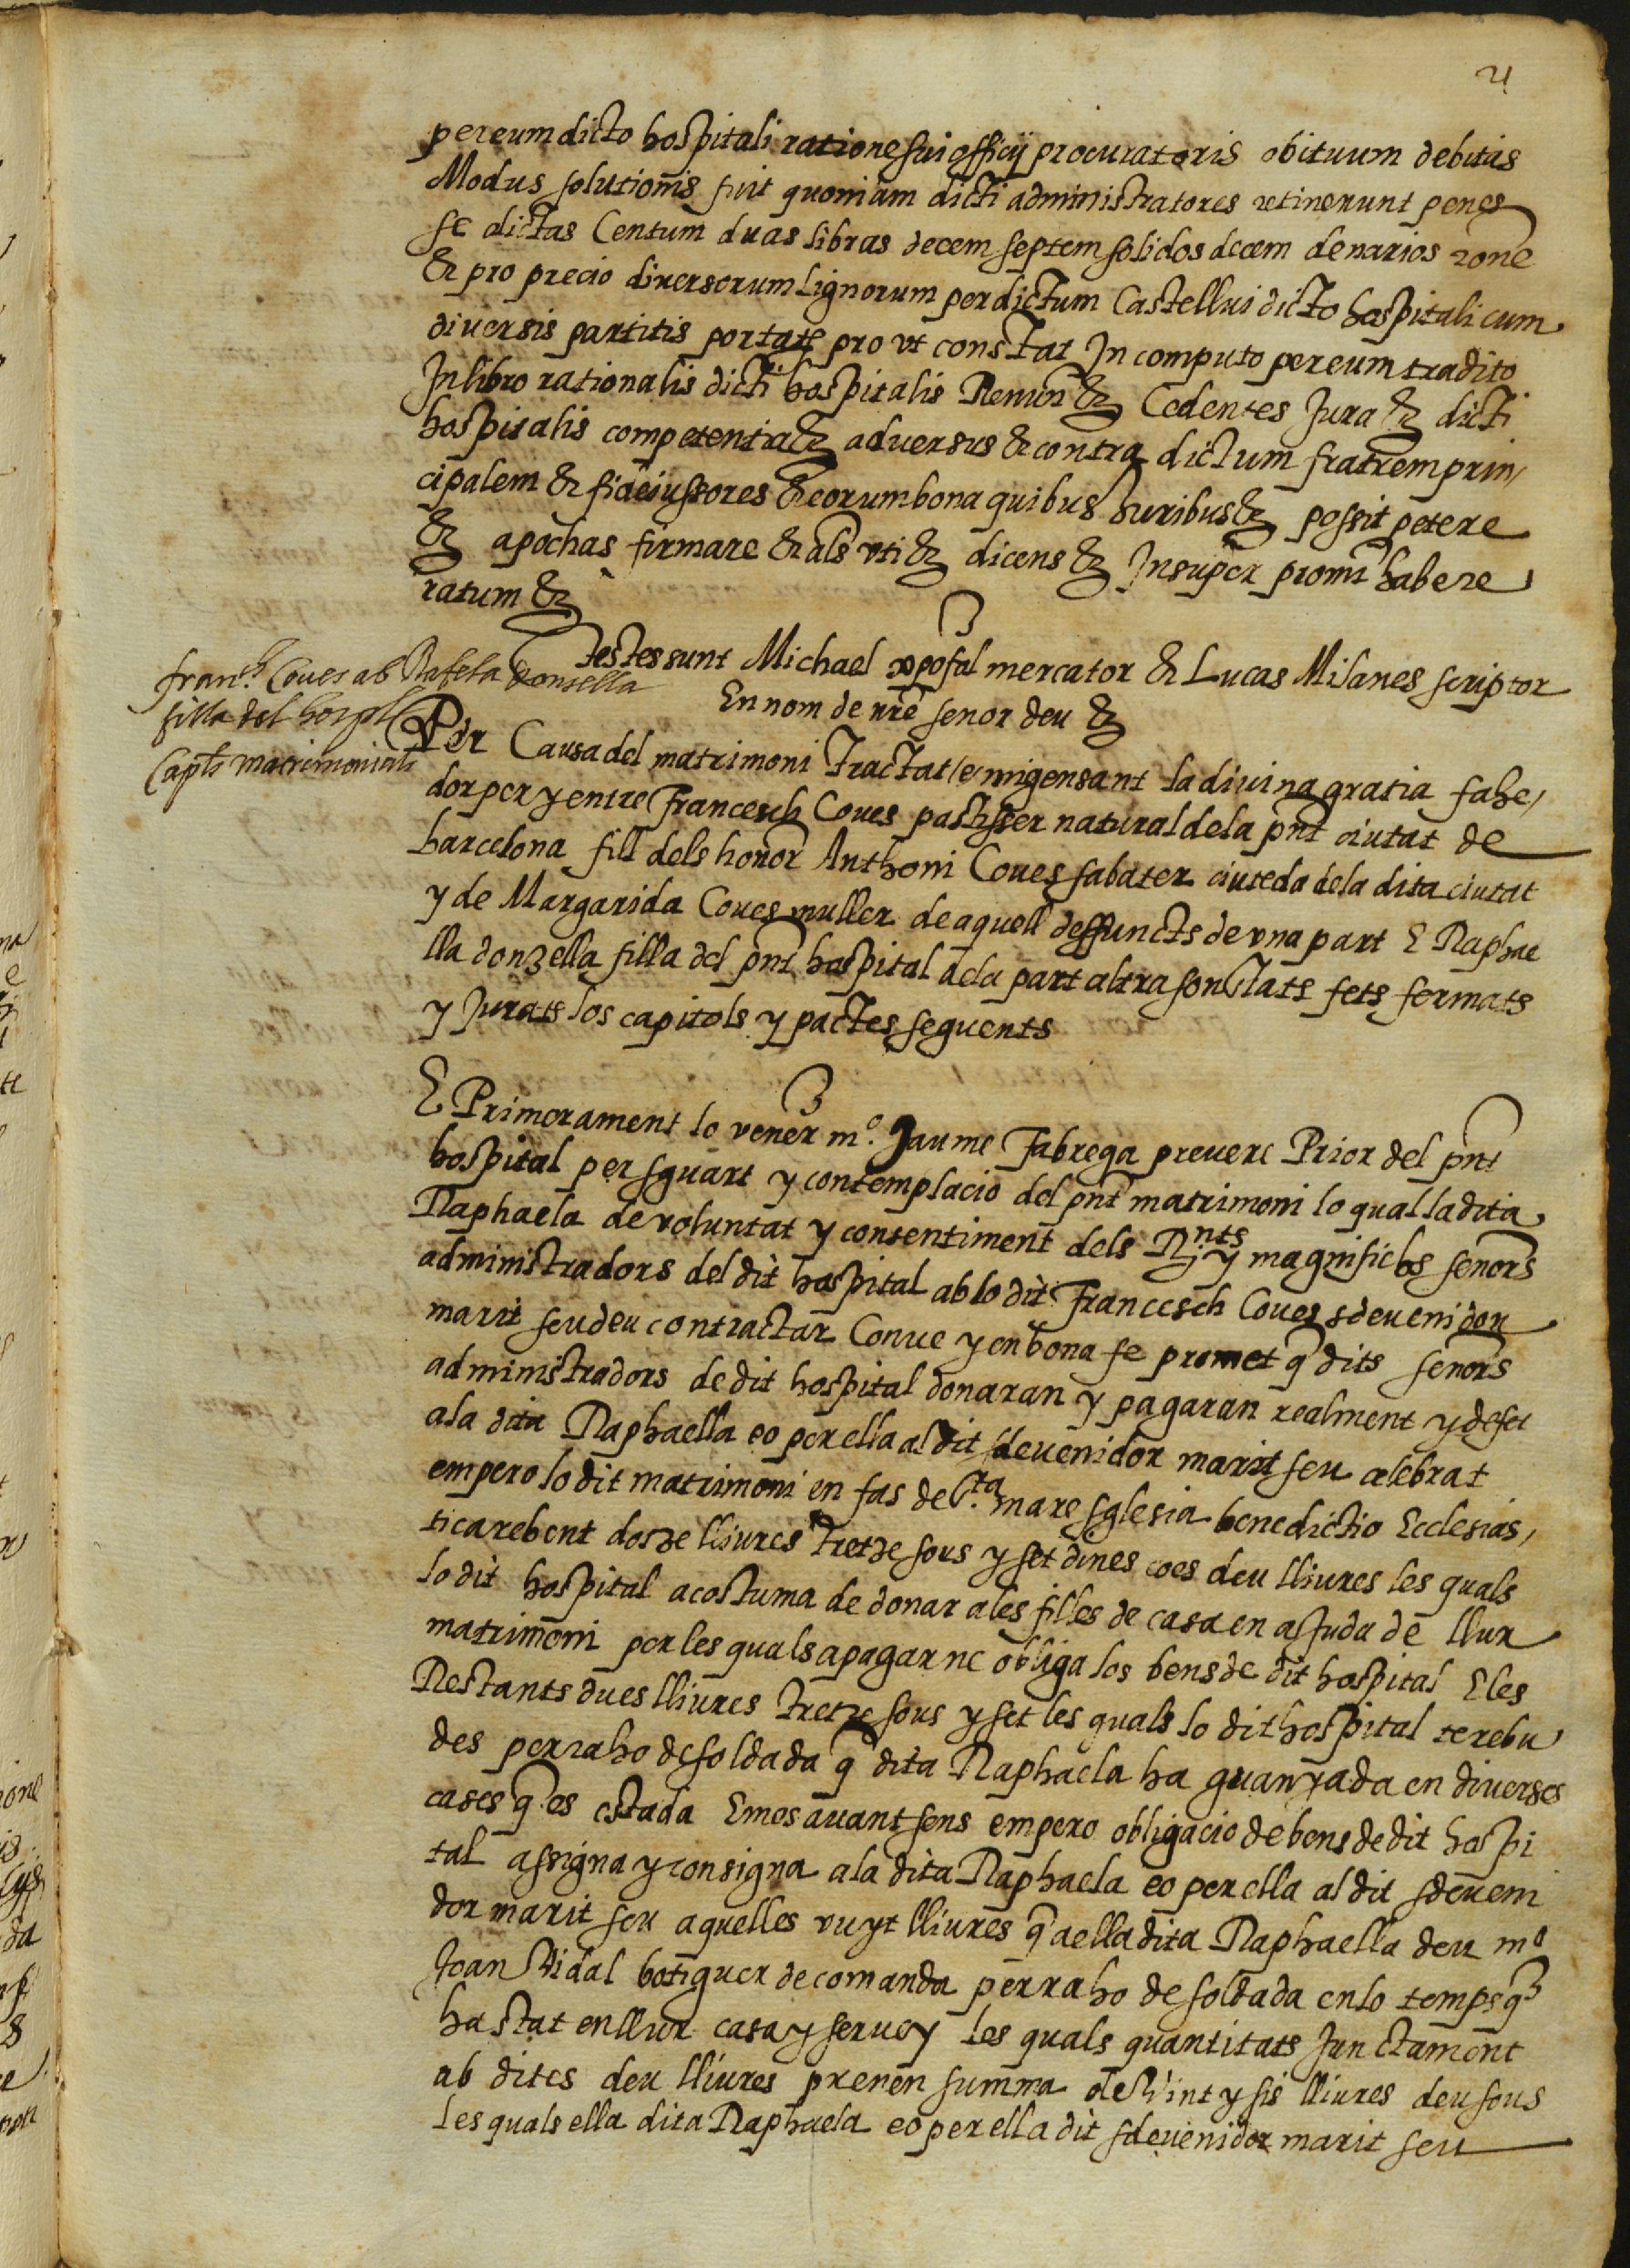 21
per eum dicto hospitali ratione sui officij procuratoris obituum debitas
Modus solutionis fuit quoniam dicti administratores retinerunt penes
se dictas Centum duas libras decem septem solidos decem denarios rone
& pro precio diversorum Lignorum per dictum Castellui dicto hospitali cum
diuersis partitis portate pro vt constat In computo per eum tradito
In libro rationalis dicti hospitalis Renun & Cedentes Jura & dicti
hospitalis competentia & aduersus & contra dictum fratrem prin,
cipalem & fideiussores & eorum bona quibus Juribus & possit petere
& apochas firmare & als vti & dicens & Insuper promt habere
ratum &
Testes sunt Michael xpofol mercator & Lucas Milanes scriptor
franch Coues ab Rafela donsella
filla del hospl
Capls matrimonials
En nom de nre senor deu &
Per Causa del matrimoni Tractat e migensant la diuina gratia fahe,
dor per y entre Francesch Coues pastisser natural dela pnt ciutat de
barcelona fill dels honor Anthoni Coues sabater ciuteda dela dita ciutat
y de Margarida Coues muller de aquell deffuncts de vna part E Raphae
lla donzella filla del pnt hospital dela part altra son stats fets fermats
y Jurats los capitols y pactes seguents
E Primerament lo vener mo. Jaume Fabrega preuere Prior del pnt
hospital per sguart y contemplacio del pnt matrimoni lo qual la dita
Raphaela de voluntat y consentiment dels Rnts y magnifichs senors
administradors del dit hospital ab lo dit Francesch Coues sdeuenidor
marit seu deu contractar Conue y en bona fe promet q dits senors
administradors de dit hospital donaran y pagaran realment y de fet
ala dita Raphaella eo per ella al dit sdeuenidor marit seu celebrat
empero lo dit matrimoni en fas de Sta mare sglesia benedictio Ecclesias,
tica rebent dotze lliures tretze sous y set dines coes deu lliures les quals
lo dit hospital acostuma de donar ales filles de casa en aJuda de llur
matrimoni per les quals a pagar ne obliga los bens de dit hospital E les
Restants dues lliures tretze sous y set les quals lo dit hospital te rebu
des per raho de soldada q dita Raphaela ha guanyada en diuerses
cases q es estada E mes auant sens empero obligacio de bens de dit hospi
tal assigna y consigna ala dita Raphaela eo per ella al dit sdeueni
dor marit seu aquelles vuyt lliures q aella dita Raphaella deu mo
Joan Vidal botiguer de comanda per raho de soldada en lo temps q
ha stat en llur casa y seruey les quals quantitats Junctament
ab dites deu lliures prenen summa de Vint y sis lliures deu sous
les quals ella dita Raphaela eo per ella dit sdeuenidor marit seu